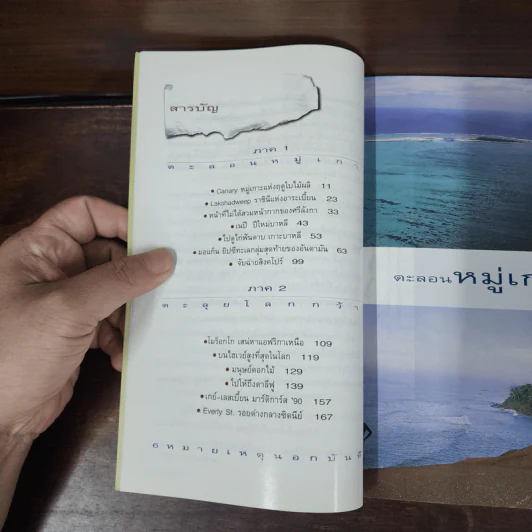 สารบัญ
ภาค 1
ตะลอนหมู่เกา
• Canary หมู่เกาะแห่งฤดูใบไม้ผลิ 11
• Lakshadweep ราชินีแห่งอาระเบี้ยน 23
• หน้าที่ไม่ได้สวมหน้ากากของศรีลังกา 33
• เนปี ปีใหม่บาหลี 43
• ไปดูไก่พันดาบ เกาะบาหลี 53
• มอแก้น ยิปซีทะเลกลุ่มสุดท้ายของอันดามัน 63
• จับฉ่ายสิงคโปร์ 99
ภาค 2
ตะลุยโลกกว้า
• โมร็อกโก เสน่หาแอฟริกาเหนือ 109
• บนไฮเวย์สูงที่สุดในโลก 119
• มนุษย์ดอกไม้ 129
• ไปให้ถึงตาลีฟู 139
• เกย์-เลสเบี้ยน มาร์ดิการ์ส '90 157
• Everly St. รอยด่างกลางซิดนีย์ 167
6 หมายเหตุนอกบันทึ
ตะลอนหมู่เก